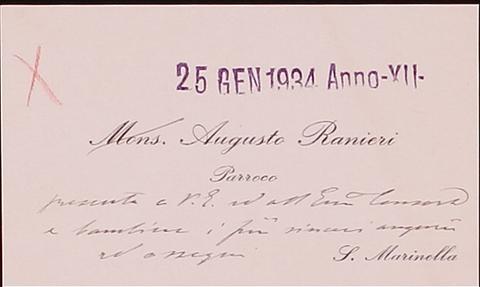 25 GEN 1934 Anno-XII-
Mons. Augusto Ranieri
Parroco
presenta a V. E. ed all'Ecc.ma Consorte
e bambine i più sinceri auguri
ed ossequi
S. Marinella